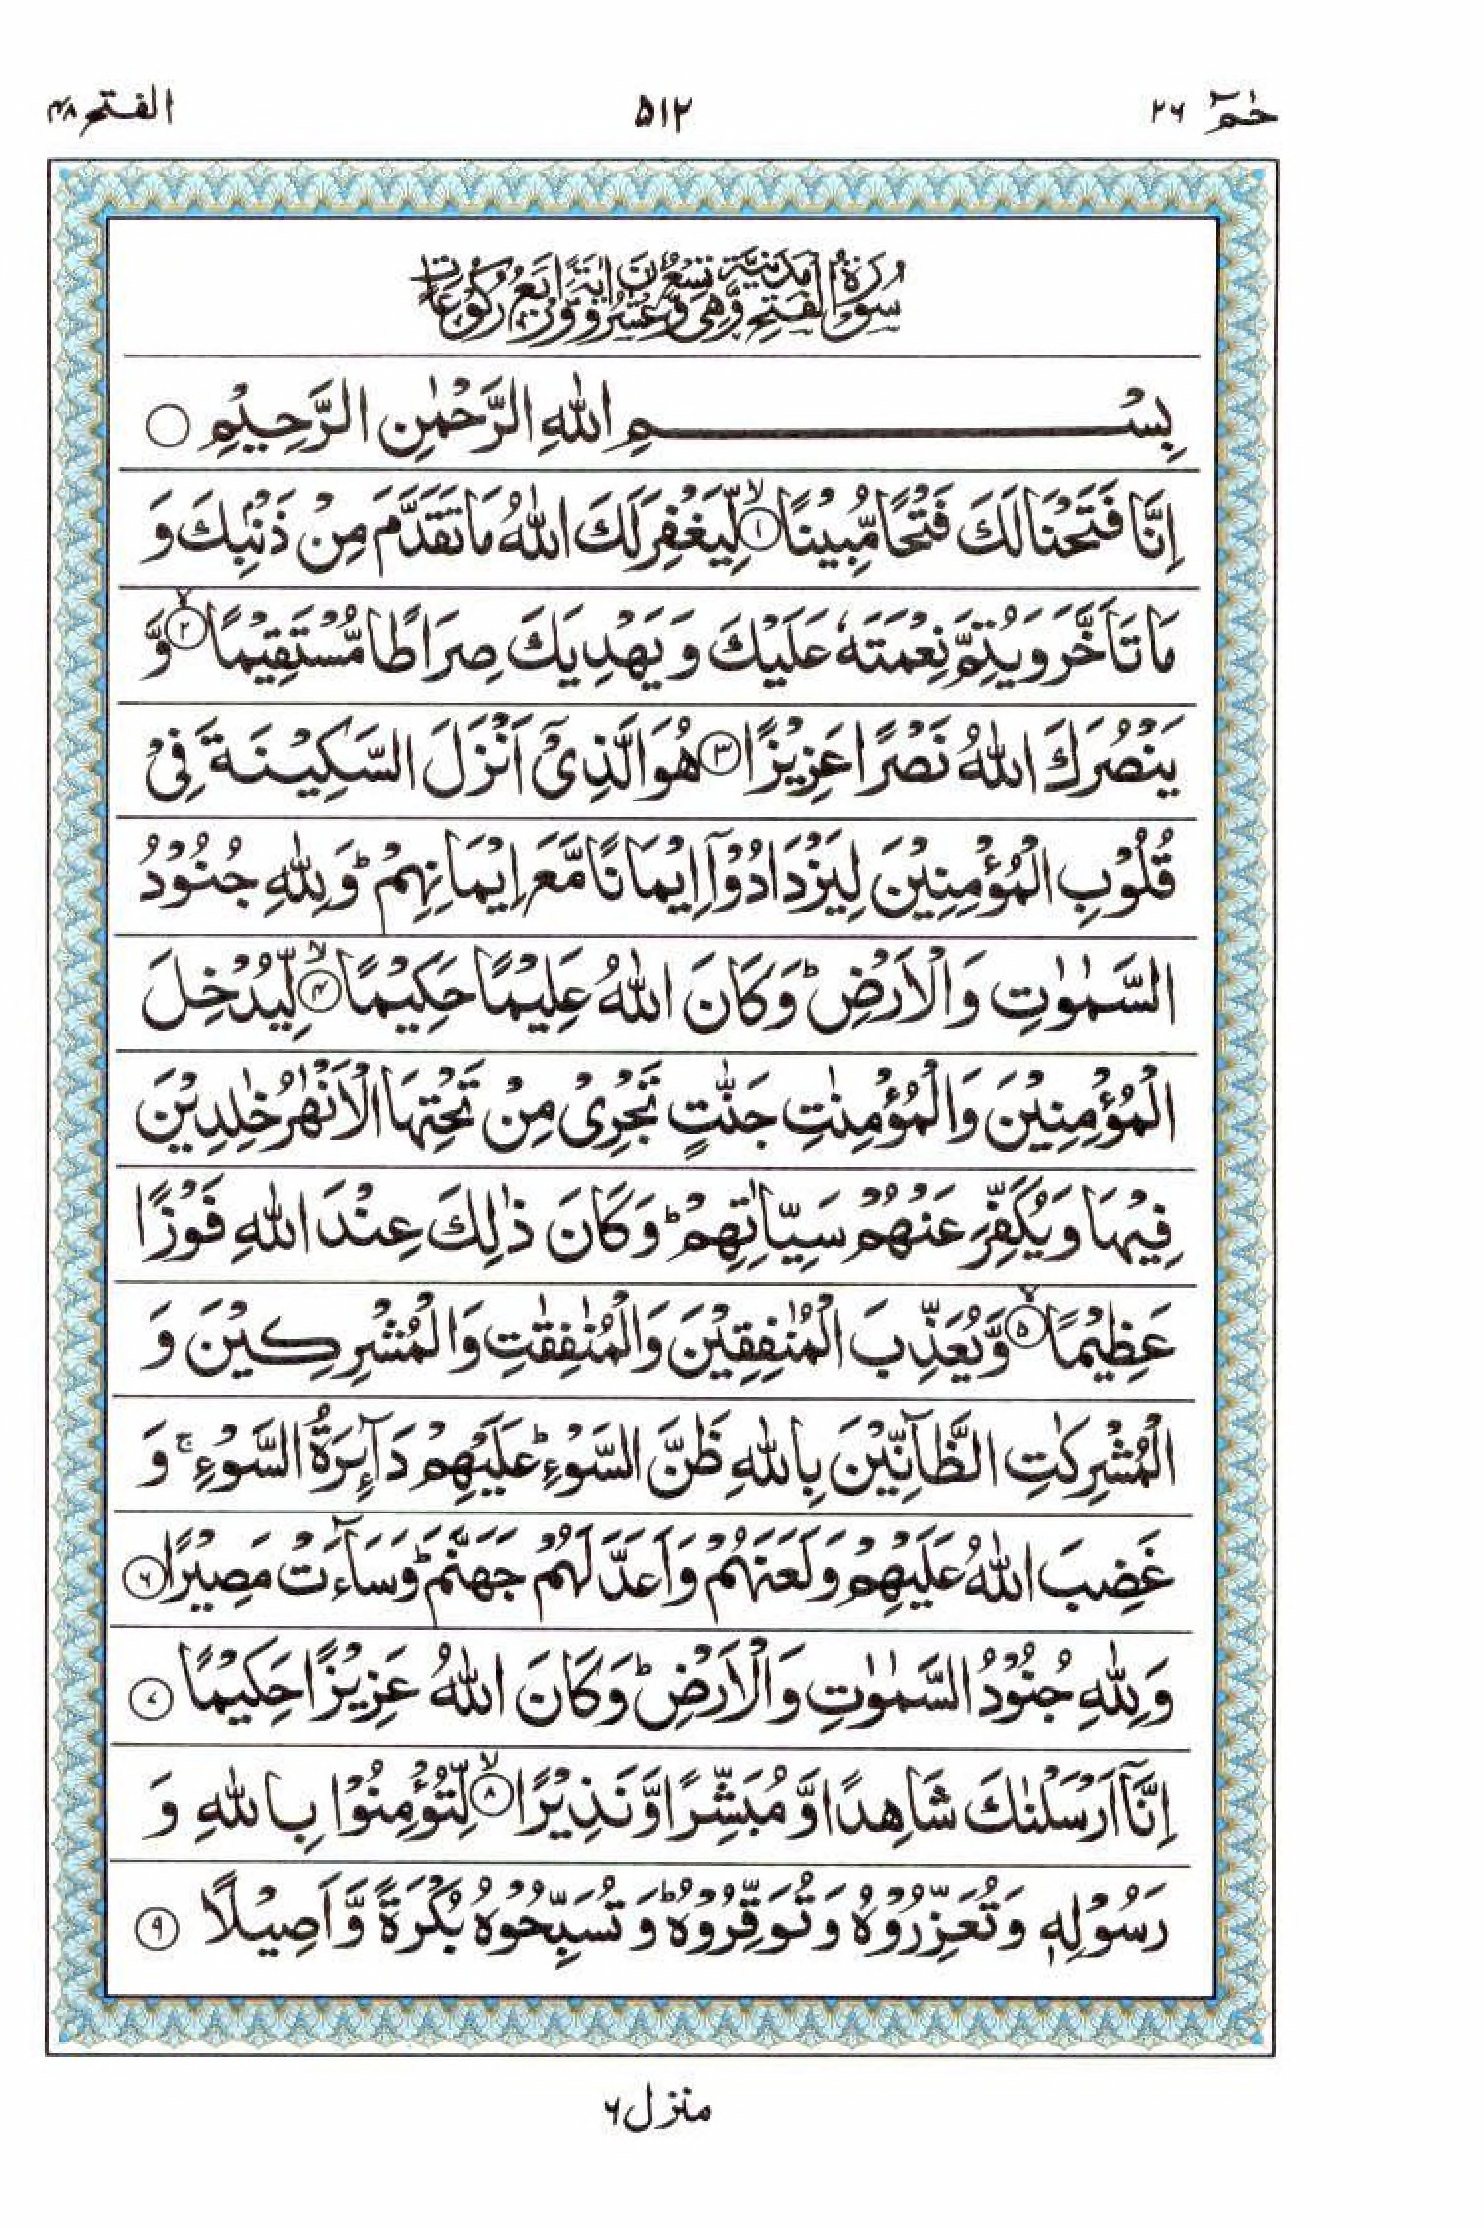 حٰمٓ ۲۶ ۵۱۲ الفتح ۴۸
سُوْرَةُ الْفَتْحِ مَدَنِيَّةٌ وَّهِيَ تِسْعٌ وَّعِشْرُوْنَ اٰيَةً وَّاَرْبَعُ رُكُوْعَاتٍ
بِسْمِ اللّٰهِ الرَّحْمٰنِ الرَّحِيْمِ ○
اِنَّا فَتَحْنَا لَكَ فَتْحًا مُّبِيْنًا ۙ﴿۱﴾ لِّيَغْفِرَ لَكَ اللّٰهُ مَا تَقَدَّمَ مِنْ ذَنْۢبِكَ وَ
مَا تَاَخَّرَ وَيُتِمَّ نِعْمَتَهٗ عَلَيْكَ وَ يَهْدِيَكَ صِرَاطًا مُّسْتَقِيْمًا ۙ﴿۲﴾ وَّ
يَنْصُرَكَ اللّٰهُ نَصْرًا عَزِيْزًا ﴿۳﴾ هُوَ الَّذِىْۤ اَنْزَلَ السَّكِيْنَةَ فِىْ
قُلُوْبِ الْمُؤْمِنِيْنَ لِيَزْدَادُوْۤا اِيْمَانًا مَّعَ اِيْمَانِهِمْ ؕ وَلِلّٰهِ جُنُوْدُ
السَّمٰوٰتِ وَالْاَرْضِ ؕ وَكَانَ اللّٰهُ عَلِيْمًا حَكِيْمًا ۙ﴿۴﴾ لِّيُدْخِلَ
الْمُؤْمِنِيْنَ وَالْمُؤْمِنٰتِ جَنّٰتٍ تَجْرِىْ مِنْ تَحْتِهَا الْاَنْهٰرُ خٰلِدِيْنَ
فِيْهَا وَيُكَفِّرَ عَنْهُمْ سَيِّاٰتِهِمْ ؕ وَكَانَ ذٰلِكَ عِنْدَ اللّٰهِ فَوْزًا
عَظِيْمًا ۙ﴿۵﴾ وَّيُعَذِّبَ الْمُنٰفِقِيْنَ وَالْمُنٰفِقٰتِ وَالْمُشْرِكِيْنَ وَ
الْمُشْرِكٰتِ الظَّآنِّيْنَ بِاللّٰهِ ظَنَّ السَّوْءِ ؕ عَلَيْهِمْ دَآئِرَةُ السَّوْءِ ۚ وَ
غَضِبَ اللّٰهُ عَلَيْهِمْ وَلَعَنَهُمْ وَاَعَدَّ لَهُمْ جَهَنَّمَ ؕ وَسَآءَتْ مَصِيْرًا ﴿۶﴾
وَلِلّٰهِ جُنُوْدُ السَّمٰوٰتِ وَالْاَرْضِ ؕ وَكَانَ اللّٰهُ عَزِيْزًا حَكِيْمًا ﴿۷﴾
اِنَّاۤ اَرْسَلْنٰكَ شَاهِدًا وَّ مُبَشِّرًا وَّ نَذِيْرًا ۙ﴿۸﴾ لِّتُؤْمِنُوْا بِاللّٰهِ وَ
رَسُوْلِهٖ وَ تُعَزِّرُوْهُ وَ تُوَقِّرُوْهُ ؕ وَ تُسَبِّحُوْهُ بُكْرَةً وَّ اَصِيْلًا ﴿۹﴾
منزل ۶